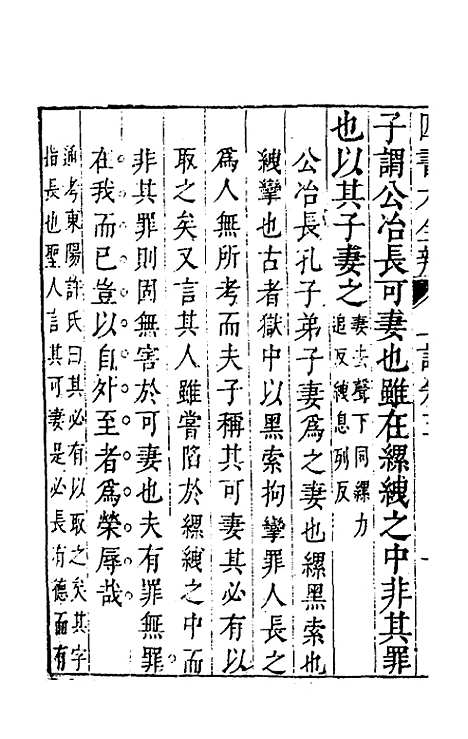 四書大全辨
子謂公冶長可妻也雖在縲絏之中非其罪
也以其子妻之
妻去聲下同縲力
追反絏息列反
公冶長孔子弟子妻爲之妻也縲黑索也
絏攣也古者獄中以黑索拘攣罪人長之
爲人無所考而夫子稱其可妻其必有以
取之矣又言其人雖嘗陷於縲絏之中而
非其罪則固無害於可妻也夫有罪無罪
在我而已豈以自外至者爲榮辱哉
通考東陽許氏曰其必有以取之矣其字
指長也聖人言其可妻是必長有德而有